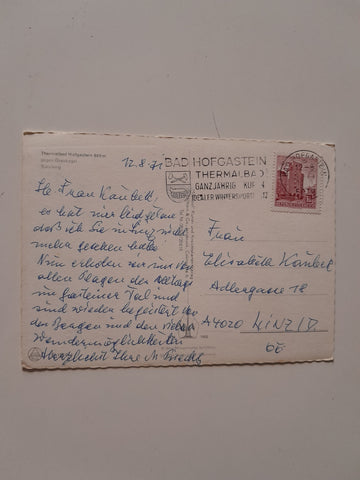 Thermalbad Hofgastein 869 m
gegen Graukogel
Salzburg
12.8.71
Lb. Frau
es hat mir leid getan
daß ich Sie in Linz nicht
mehr gesehen habe
Nun erholen wir uns von
allen Plagen des Alltags
im Gasteiner Tal und
sind wieder begeistert von
den Bergen und den vielen
Wandermöglichkeiten
Herzlichst Ihre M.
BAD HOFGASTEIN
THERMALBAD
GANZJÄHRIG KUR
IDEALER WINTERSPORT
Frau
Elisabeth
Adlergasse 12
A4020 LINZ/D.
OÖ